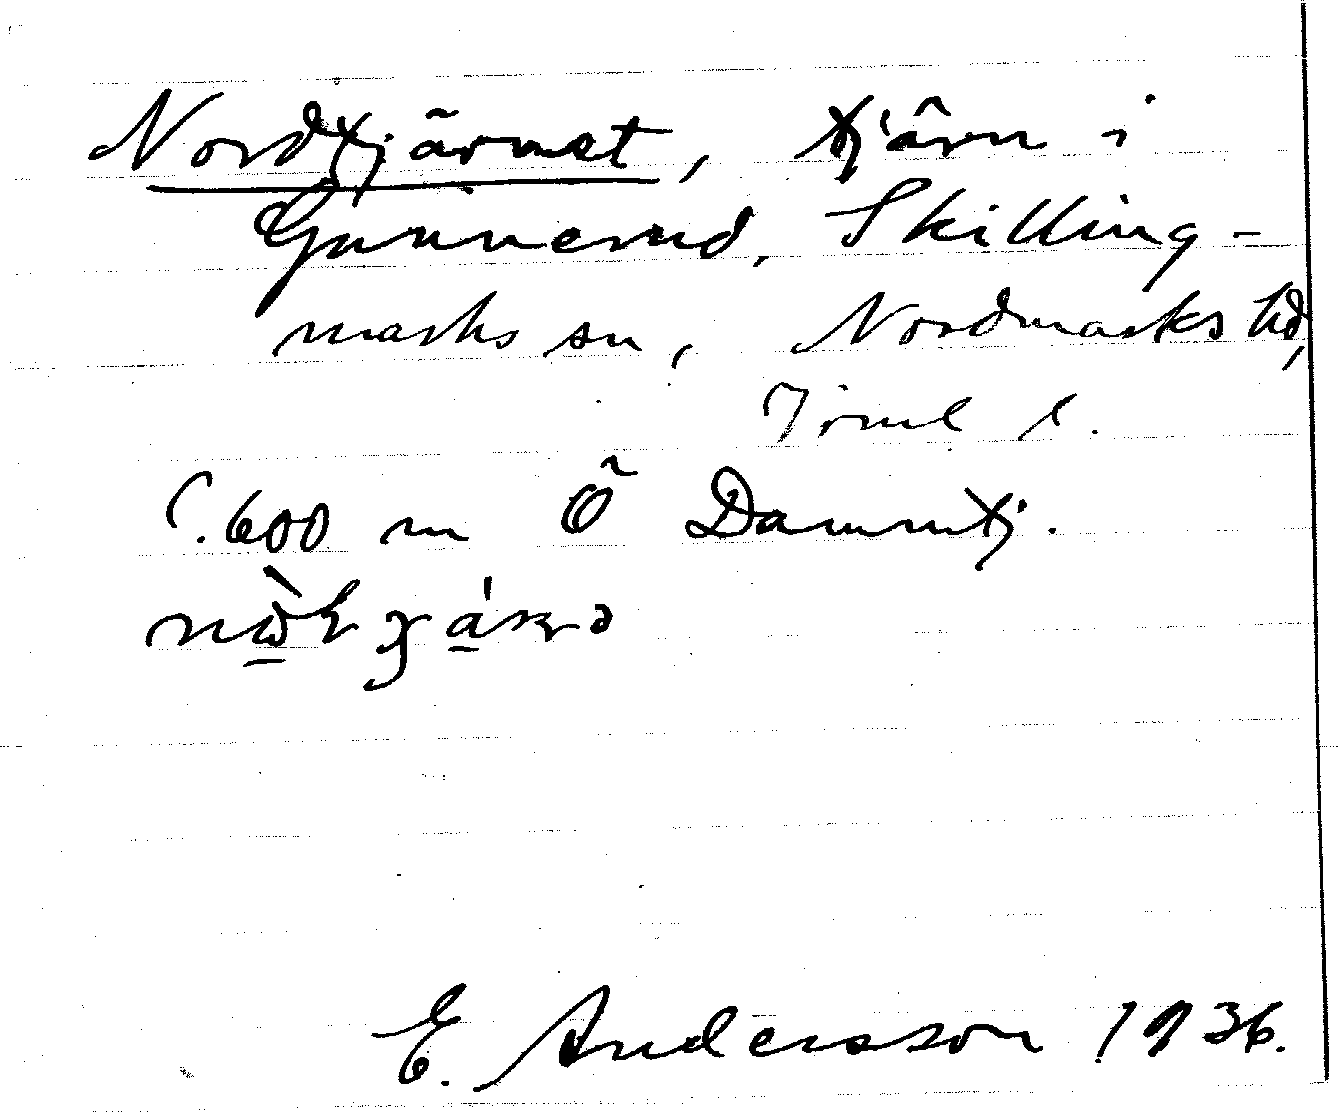 Nordtjärnet, tjärn i
Gunnerud, Skilling-
marks sn, Nordmarks hd,
Värml l.
C. 600 m Ö Dammtj.
E. Andersson 1936.